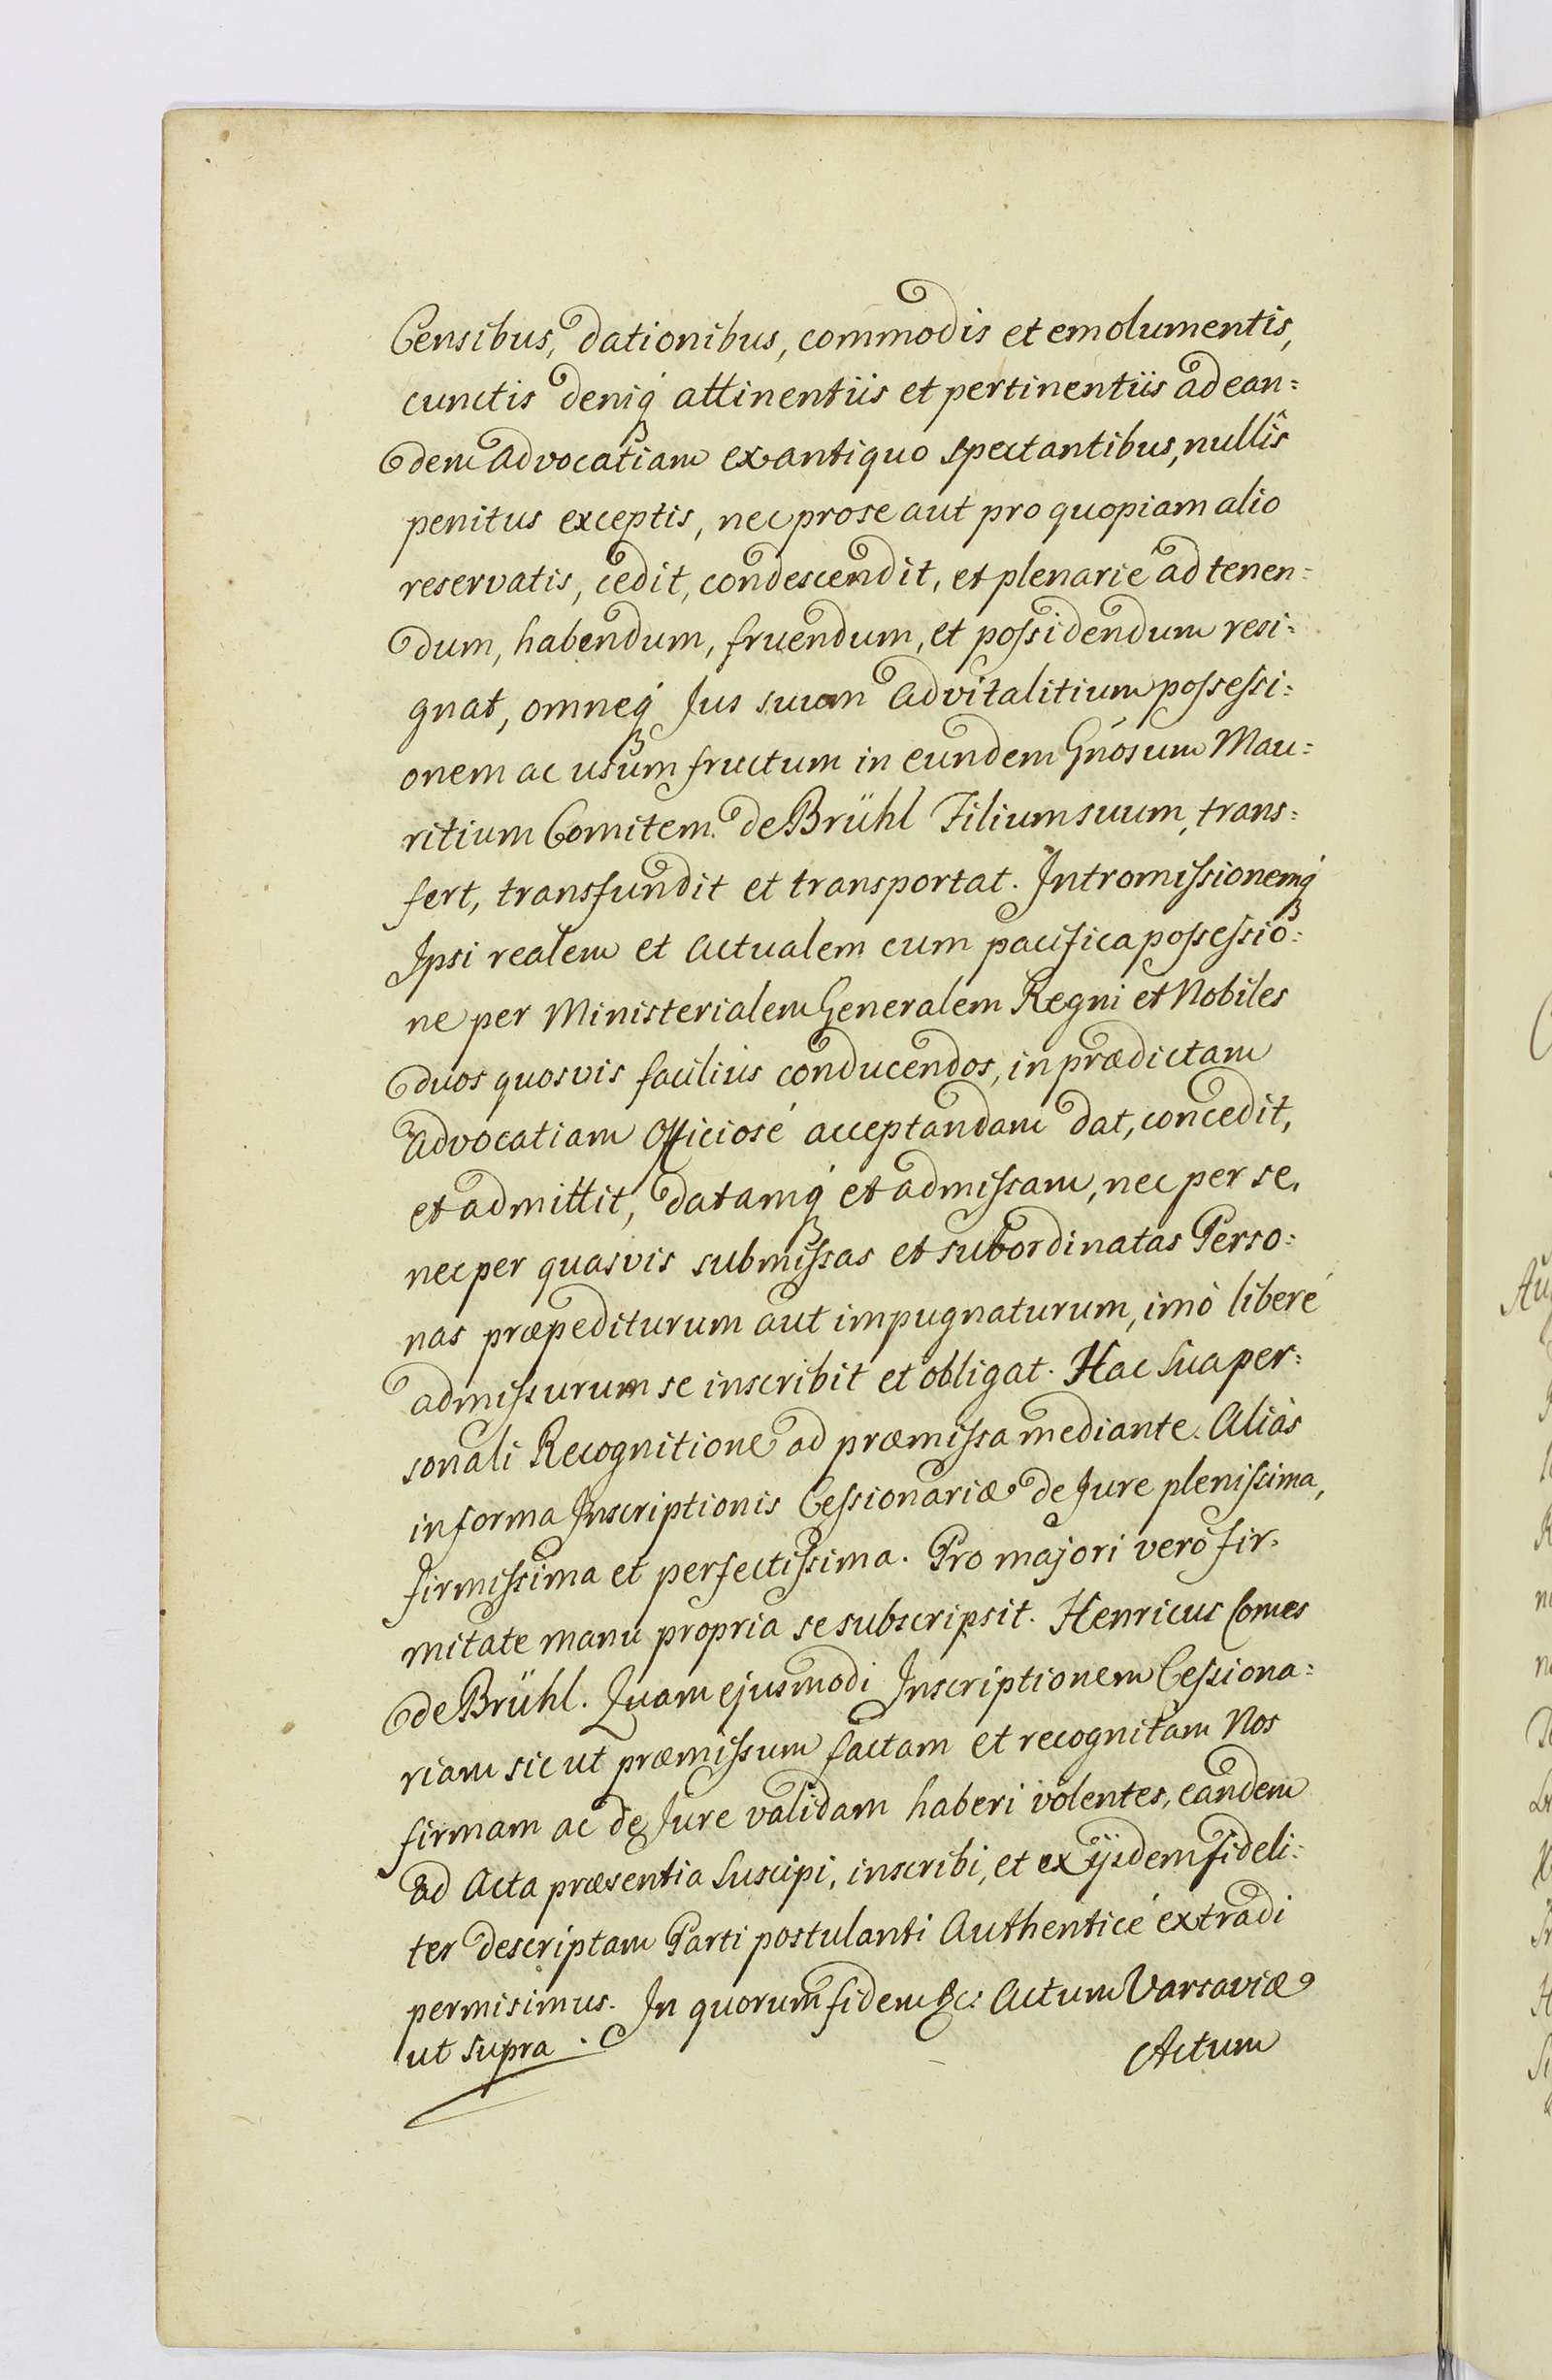 Censibus, dationibus, commodis et emolumentis,
cunctis deniq́ꝫ attinentiis et pertinentiis ad ean=
dem Advocatiam ex antiquo spectantibus, nullis
penitus exceptis, nec pro se aut pro quopiam alio
reservatis, cedit, condescendit, et plenarie ad tenen=
dum, habendum, fruendum, et poſsidendum resi=
gnat, omneq́ꝫ Jus suum advitalitium poſseſsi=
onem ac usum fructum in eundem Gnosum Mau=
ritium Comitem de Brühl Filium suum, trans=
fert, transfundit et transportat. Intromiſsionemq́ꝫ
Ipsi realem et actualem cum pacifica poſseſsio=
ne per Ministerialem Generalem Regni et Nobiles
duos quosvis faciliùs conducendos, in prædictam
Advocatiam Officiosé acceptandam dat, concedit,
et admittit, datamq́ꝫ et admiſsam, nec per se,
nec per quasvis submiſsas et subordinatas Perso=
nas præpediturum aut impugnaturum, imò liberé
admiſsurum se inscribit et obligat. Hac Sua per=
sonali Recognitione ad præmiſsa mediante. Aliàs
in forma Inscriptionis Ceſsionariæ de Jure pleniſsima,
firmiſsima et perfectiſsima. Pro majori verò fir=
mitate manu propria se subscripsit. Henricus Comes
de Brühl. Quam ejusmodi Inscriptionem Ceſsiona=
riam sic ut præmiſsum factam et recognitam Nos
firmam ac de Jure validam haberi volentes, eandem
ad Acta præsentia Suscipi, inscribi, et ex ijsdem fideli=
ter descriptam Parti postulanti Authenticé extradi
permisimus. In quorum fidem &c: Actum Varsaviæ
ut supra.
Actum